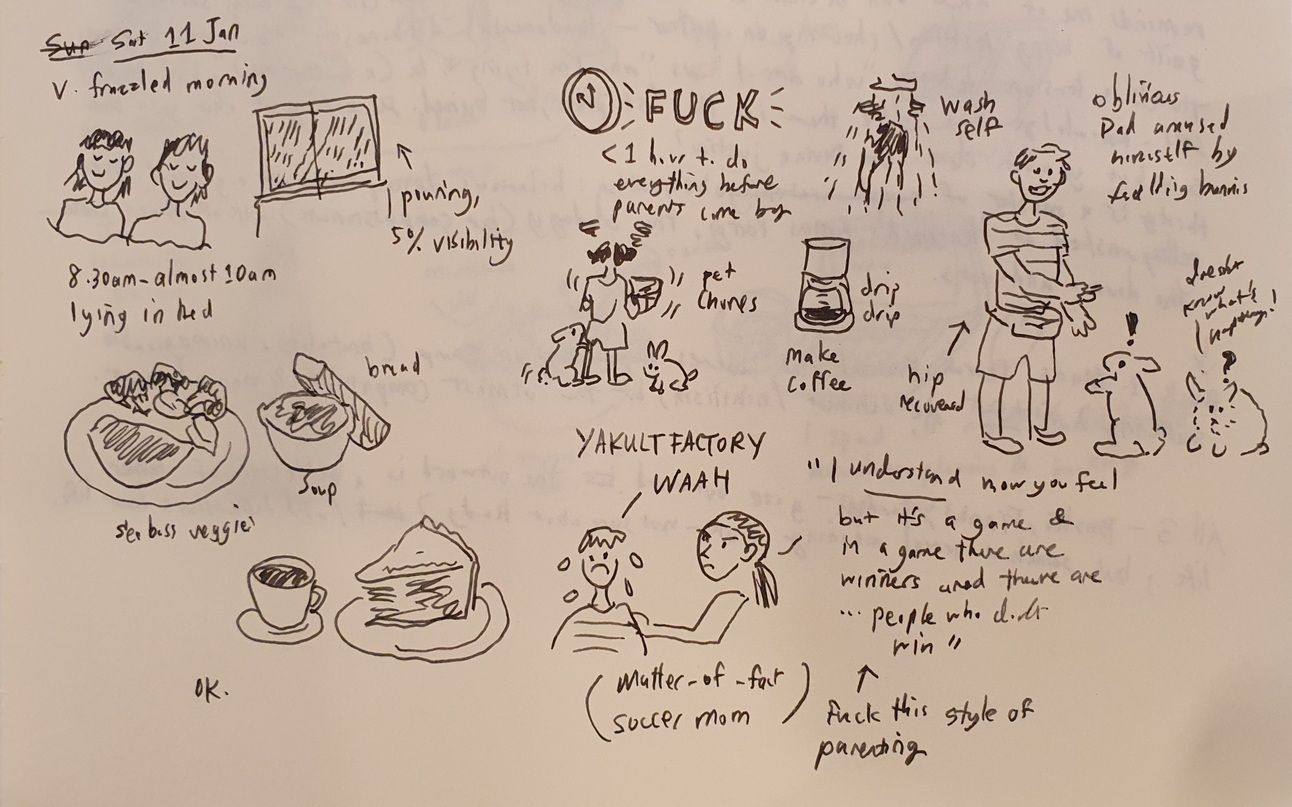 Sun Sat 11 Jan
V. frazzled morning
pouring,
5% visibility
8.30am - almost 10am
lying in bed
FUCK
< 1 hour to do
everything before
parents come by
pet
chores
wash
self
drip
drip
make
coffee
oblivious
Dad amused
himself by
feeding bunnies
hip
recovered
!
doesn't
know
what's
happening!
?
sea bass veggies
bread
soup
OK.
YAKULT FACTORY
WAAH
(matter-of-fact
soccer mom)
"I understand how you feel
but it's a game &
in a game there are
winners and there are
... people who don't
win"
Fuck this style of
parenting